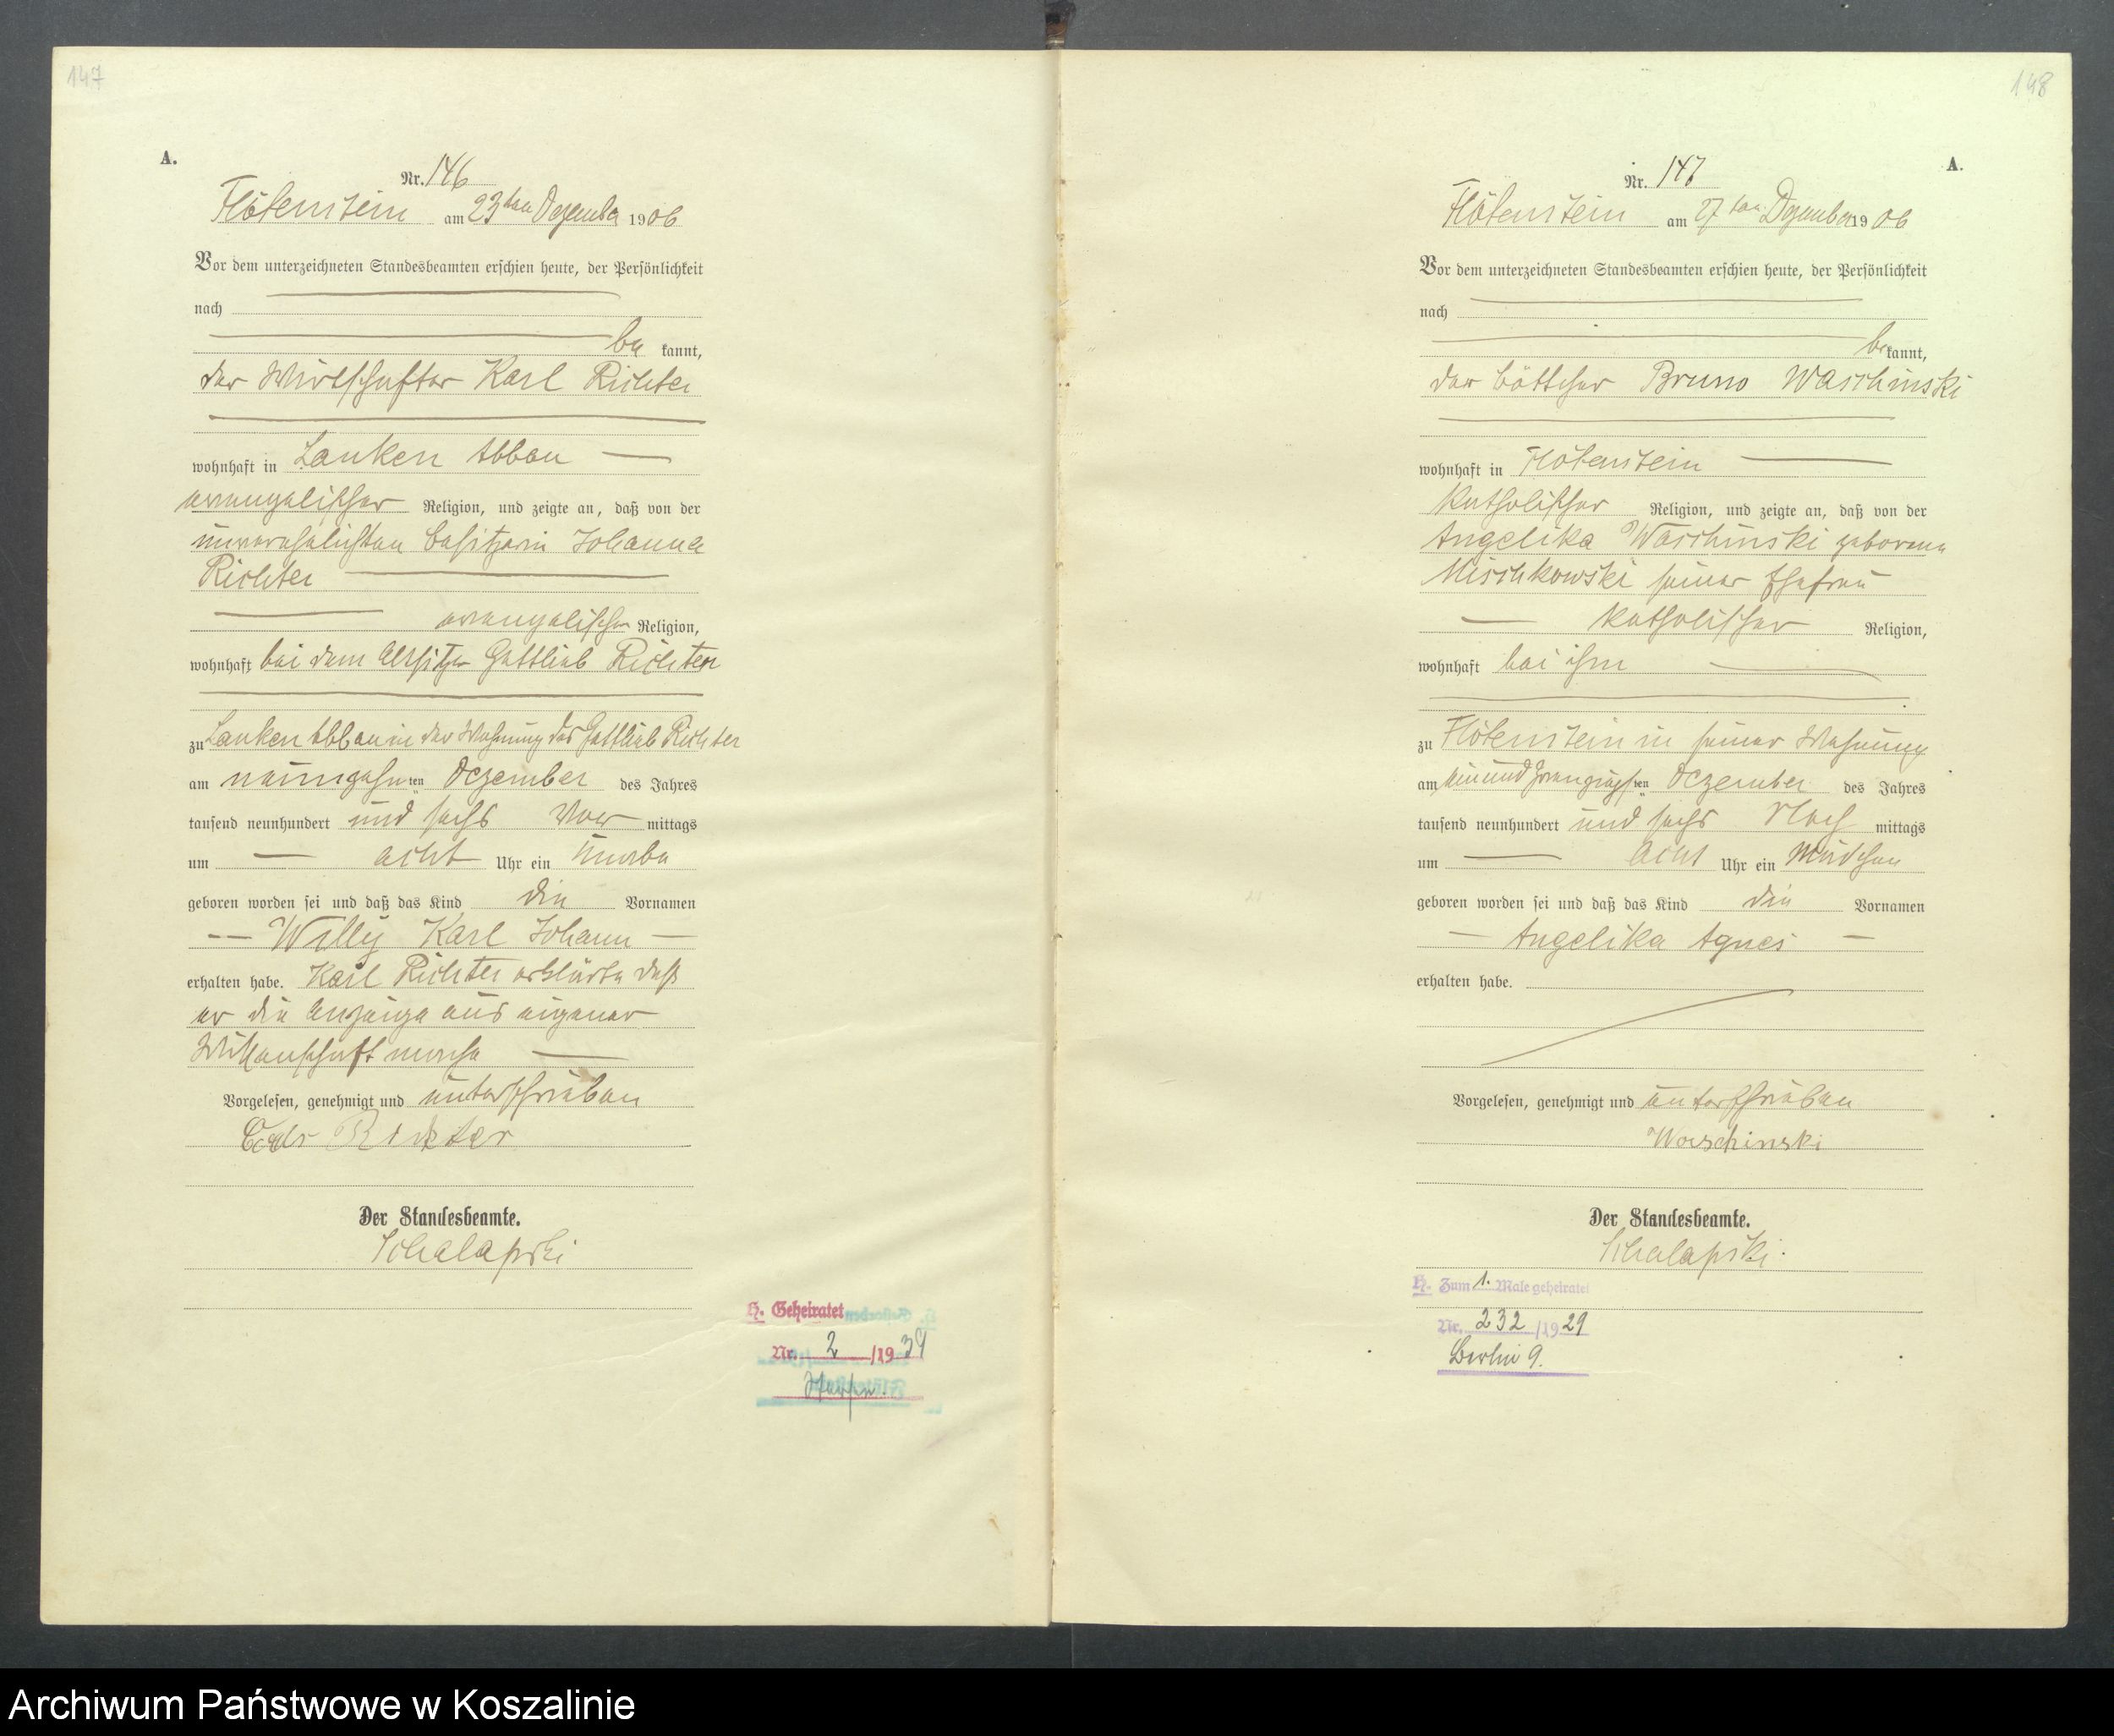 147
A.
Nr. 146
Flötenstein am 23ten Dezember 1906
Vor dem unterzeichneten Standesbeamten erschien heute, der Persönlichkeit
nach
be kannt,
der Wirtschafter Karl Richter
wohnhaft in Lanken Abbau
evangelischer Religion, und zeigte an, daß von der
unverehelichten Besitzerin Johanna
Richter
evangelischer Religion,
wohnhaft bei dem Altsitzer Gottlieb Richter
zu Lanken Abbau in der Wohnung des Gottlieb Richter
am neunzehnten Dezember des Jahres
tausend neunhundert und sechs Vor mittags
um acht Uhr ein Knabe
geboren worden sei und daß das Kind die Vornamen
Willy Karl Johann
erhalten habe. Karl Richter erklärte daß
er die Anzeige aus eigener
Wissenschaft mache
Vorgelesen, genehmigt und unterschrieben
Richter
Der Standesbeamte.
Schalapski
H. Geheiratet
Nr. 2 /1934
148
A.
Nr. 147
Flötenstein am 27ten Dezember 1906
Vor dem unterzeichneten Standesbeamten erschien heute, der Persönlichkeit
nach
be kannt,
der Böttcher Bruno Waschinski
wohnhaft in Flötenstein
katholischer Religion, und zeigte an, daß von der
Angelika Waschinski geborene
Mischkowski seiner Ehefrau
katholischer Religion,
wohnhaft bei ihm
zu Flötenstein in seiner Wohnung
am einundzwanzigsten Dezember des Jahres
tausend neunhundert und sechs Nach mittags
um acht Uhr ein Mädchen
geboren worden sei und daß das Kind die Vornamen
Angelika Agnes
erhalten habe.
Vorgelesen, genehmigt und unterschrieben
Waschinski
Der Standesbeamte.
Schalapski.
H. Zum 1. Male geheiratet
Nr. 232 /1929
Berlin 9.
Archiwum Państwowe w Koszalinie